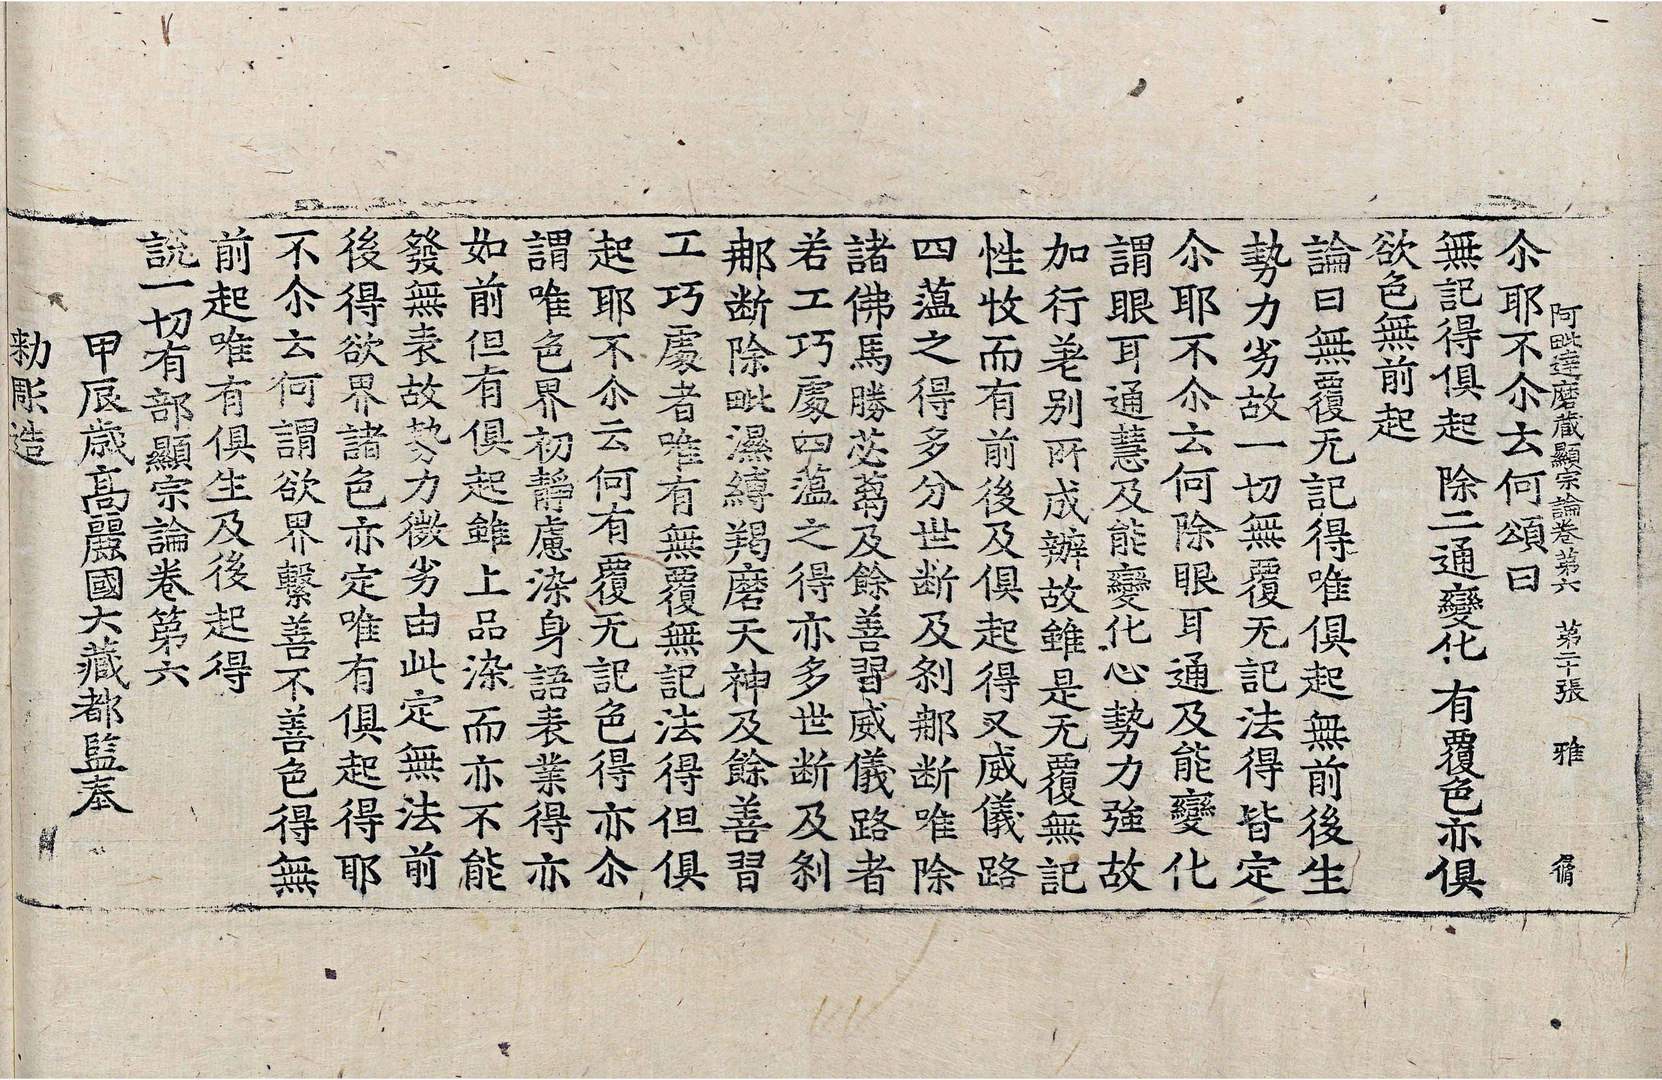 阿毗達磨藏顯宗論卷第六 第二十張 雅
尒耶不尒云何頌曰
無記得俱起 除二通變化 有覆色亦俱
欲色無前起
論曰無覆无記得唯俱起無前後生
勢力劣故一切無覆无記法得皆定
尒耶不尒云何除眼耳通及能變化
謂眼耳通慧及能變化心勢力強故
加行差別所成辦故雖是无覆無記
性收而有前後及俱起得又威儀路
四蕰之得多分世断及剎那断唯除
諸佛馬勝苾蒭及餘善習威儀路者
若工巧處四蕰之得亦多世断及剎
那断除毗濕縛羯磨天神及餘善習
工巧處者唯有無覆無記法得但俱
起耶不尒云何有覆无記色得亦尒
謂唯色界初靜慮染身語表業得亦
如前但有俱起雖上品染而亦不能
發無表故勢力微劣由此定無法前
後得欲界諸色亦定唯有俱起得耶
不尒云何謂欲界繫善不善色得無
前起唯有俱生及後起得
說一切有部顯宗論卷第六
甲辰歲高麗國大藏都監奉
勑彫造